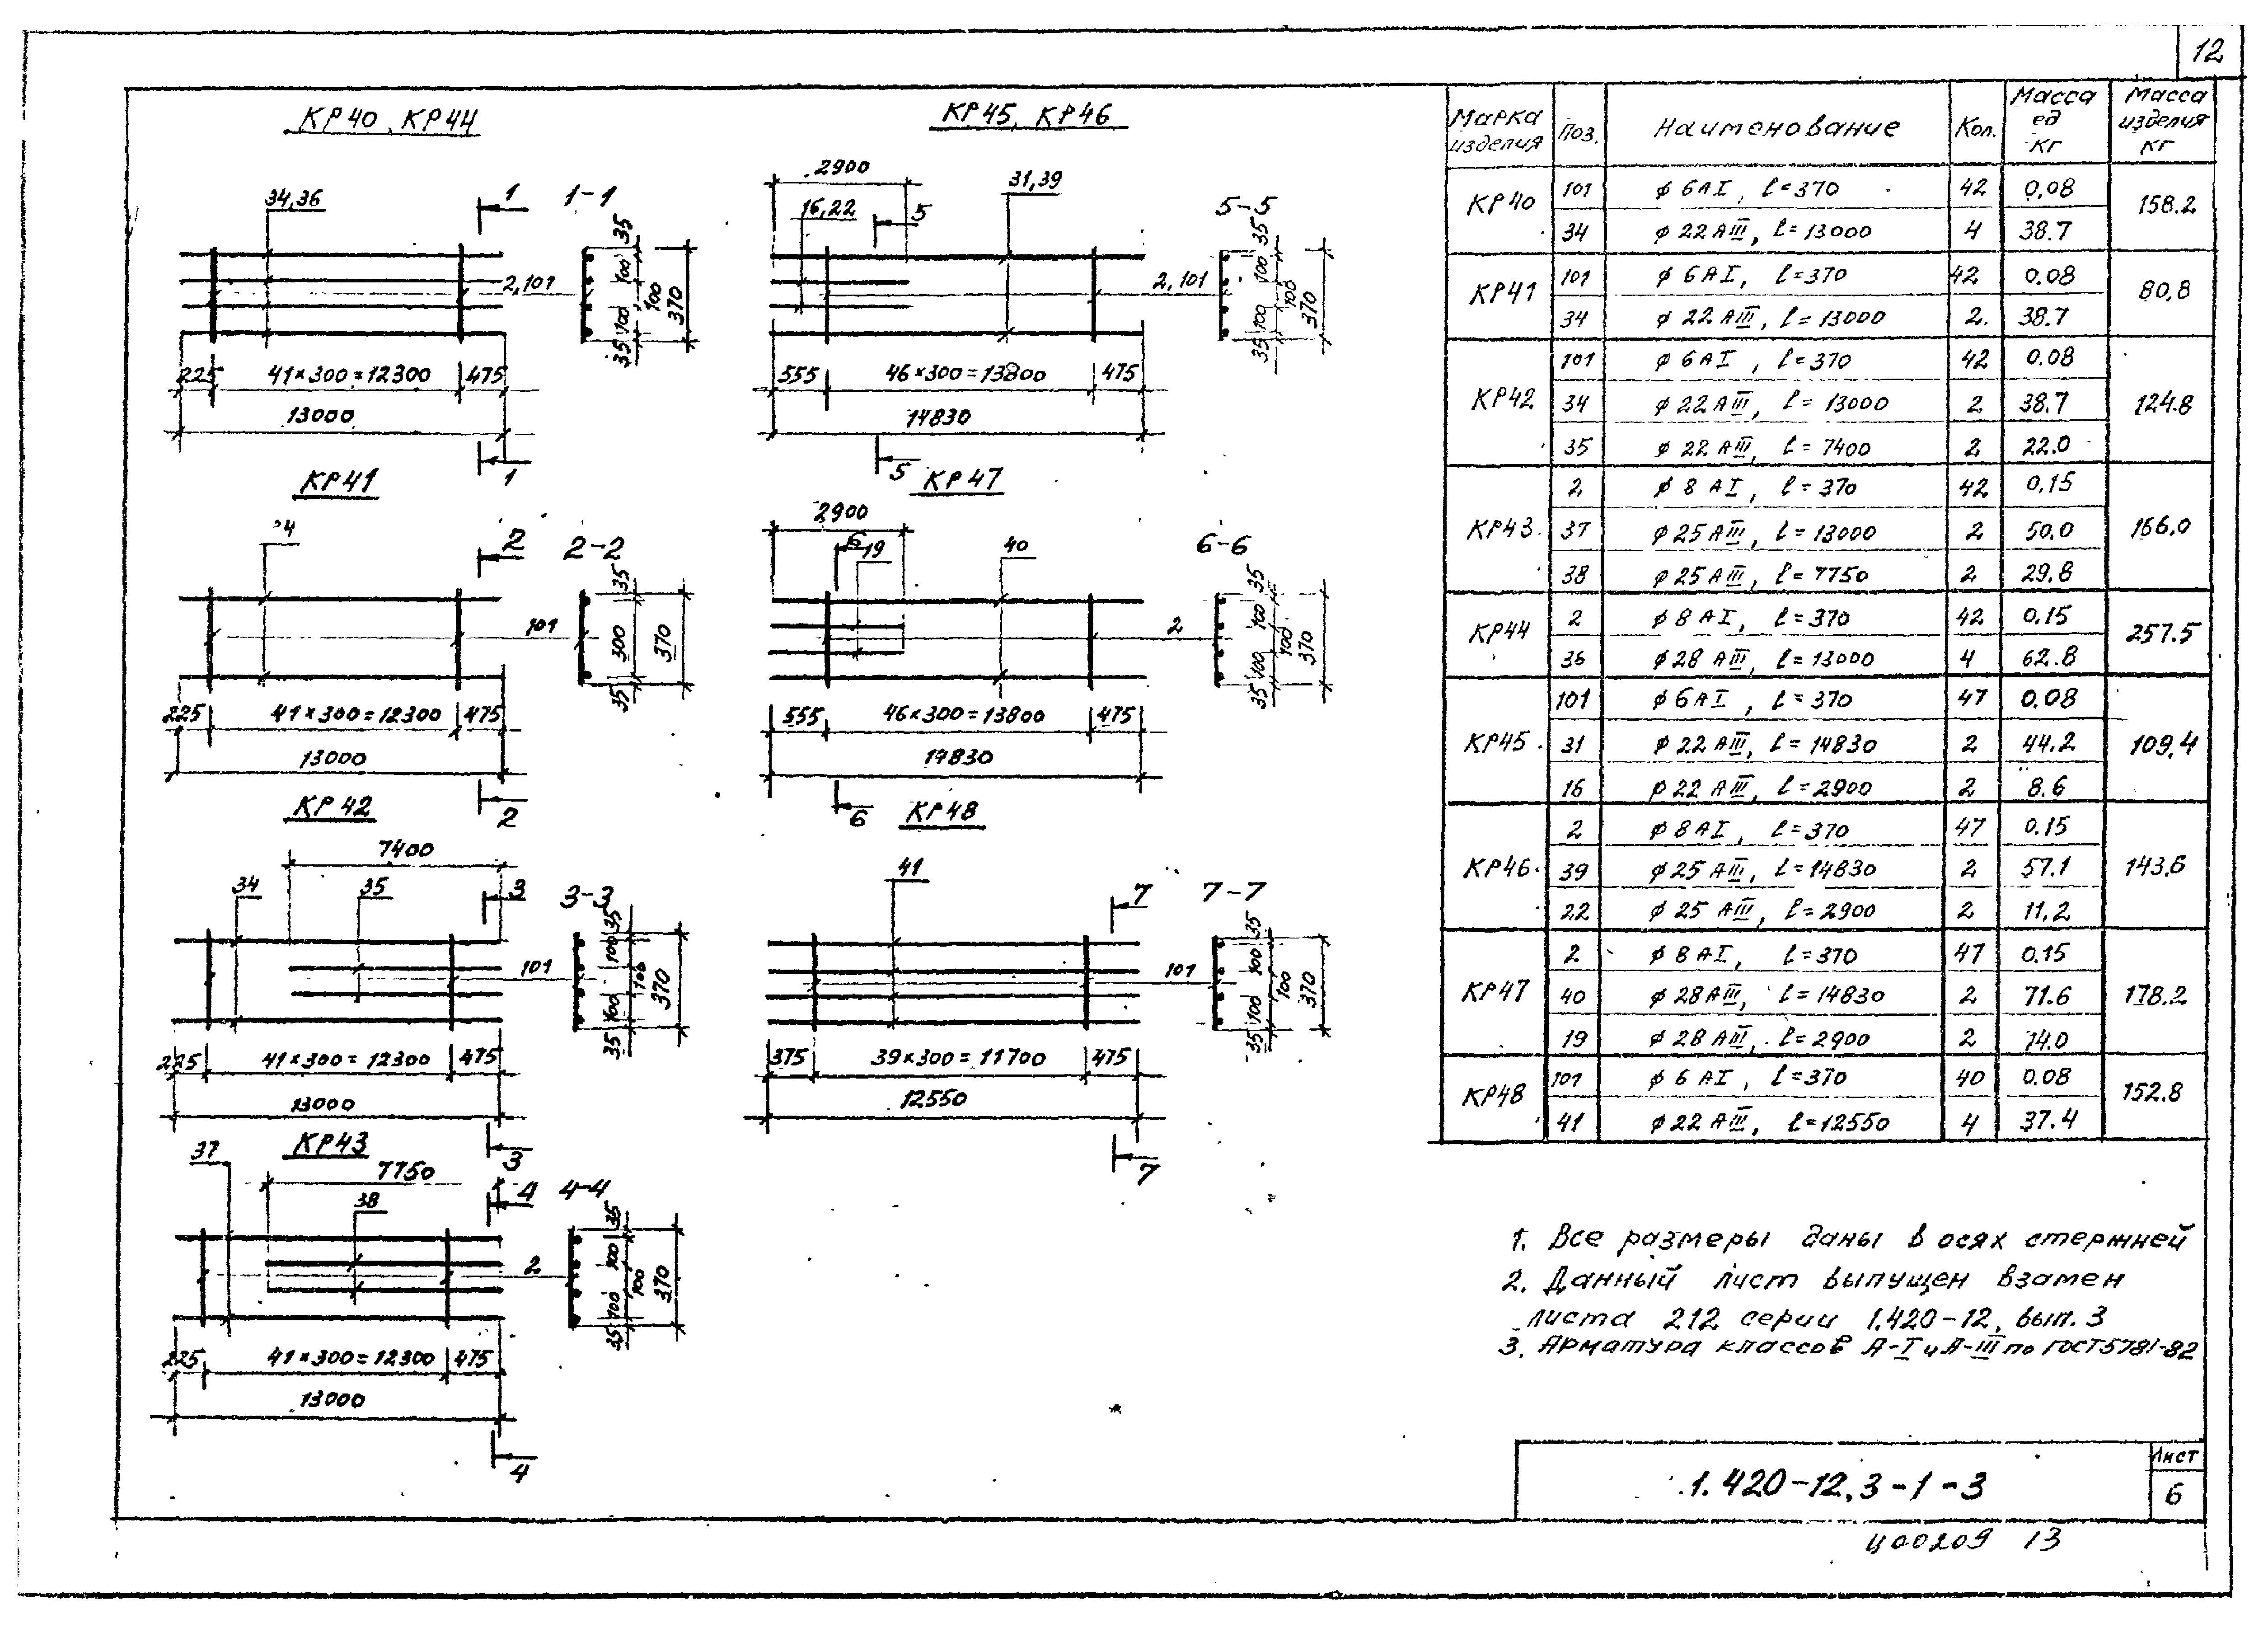 12
КР40, КР44
34,36
1
1-1
2,101
35
100
100
100
35
370
225
41×300=12300
475
13000
1
КР41
2
2-2
101
35
300
35
370
225
41×300=12300
475
13000
2
КР42
7400
34
35
3
3-3
101
35
100
100
100
35
370
225
41×300=12300
475
13000
3
КР43
37
7750
38
4
4-4
2
35
100
100
100
35
370
225
41×300=12300
475
13000
4
КР45, КР46
2900
31,39
16,22
5
5-5
2,101
35
100
100
100
35
370
555
46×300=13800
475
14830
5
КР47
2900
6
19
40
6-6
2
35
100
100
100
35
370
555
46×300=13800
475
14830
6
КР48
41
7
7-7
101
35
100
100
100
35
370
375
39×300=11700
475
12550
7
Марка изделия Поз. Наименование Кол. Масса ед кг Масса изделия кг
КР40 101 ϕ 6АI, ℓ=370 42 0,08 158.2
34 ϕ 22АIII, ℓ=13000 4 38.7
КР41 101 ϕ 6АI, ℓ=370 42 0.08 80,8
34 ϕ 22АIII, ℓ=13000 2. 38.7
КР42 101 ϕ 6АI, ℓ=370 42 0.08 124.8
34 ϕ 22АIII, ℓ=13000 2 38.7
35 ϕ 22АIII, ℓ=7400 2 22.0
КР43 2 ϕ 8 АI, ℓ=370 42 0,15 166,0
37 ϕ 25АIII, ℓ=13000 2 50.0
38 ϕ 25АIII, ℓ=7750 2 29.8
КР44 2 ϕ 8 АI, ℓ=370 42 0,15 257.5
36 ϕ 28 АIII, ℓ=13000 4 62.8
КР45 101 ϕ 6АI, ℓ=370 47 0.08 109,4
31 ϕ 22АIII, ℓ=14830 2 44.2
16 ϕ 22 АIII, ℓ=2900 2 8.6
КР46 2 ϕ 8АI, ℓ=370 47 0.15 143.6
39 ϕ 25 АIII, ℓ=14830 2 57.1
22 ϕ 25 АIII, ℓ=2900 2 11,2
КР47 2 ϕ 8АI, ℓ=370 47 0.15 178.2
40 ϕ 28АIII, ℓ=14830 2 71.6
19 ϕ 28 АIII, ℓ=2900 2 14.0
КР48 101 ϕ 6 АI, ℓ=370 40 0.08 152.8
41 ϕ 22 АIII, ℓ=12550 4 37.4
1. Все размеры даны в осях стержней
2. Данный лист выпущен взамен
листа 212 серии 1.420-12, вып. 3
3. Арматура классов А-I и А-III по ГОСТ5781-82
1.420-12.3-1-3
Лист
6
Ц00209 13